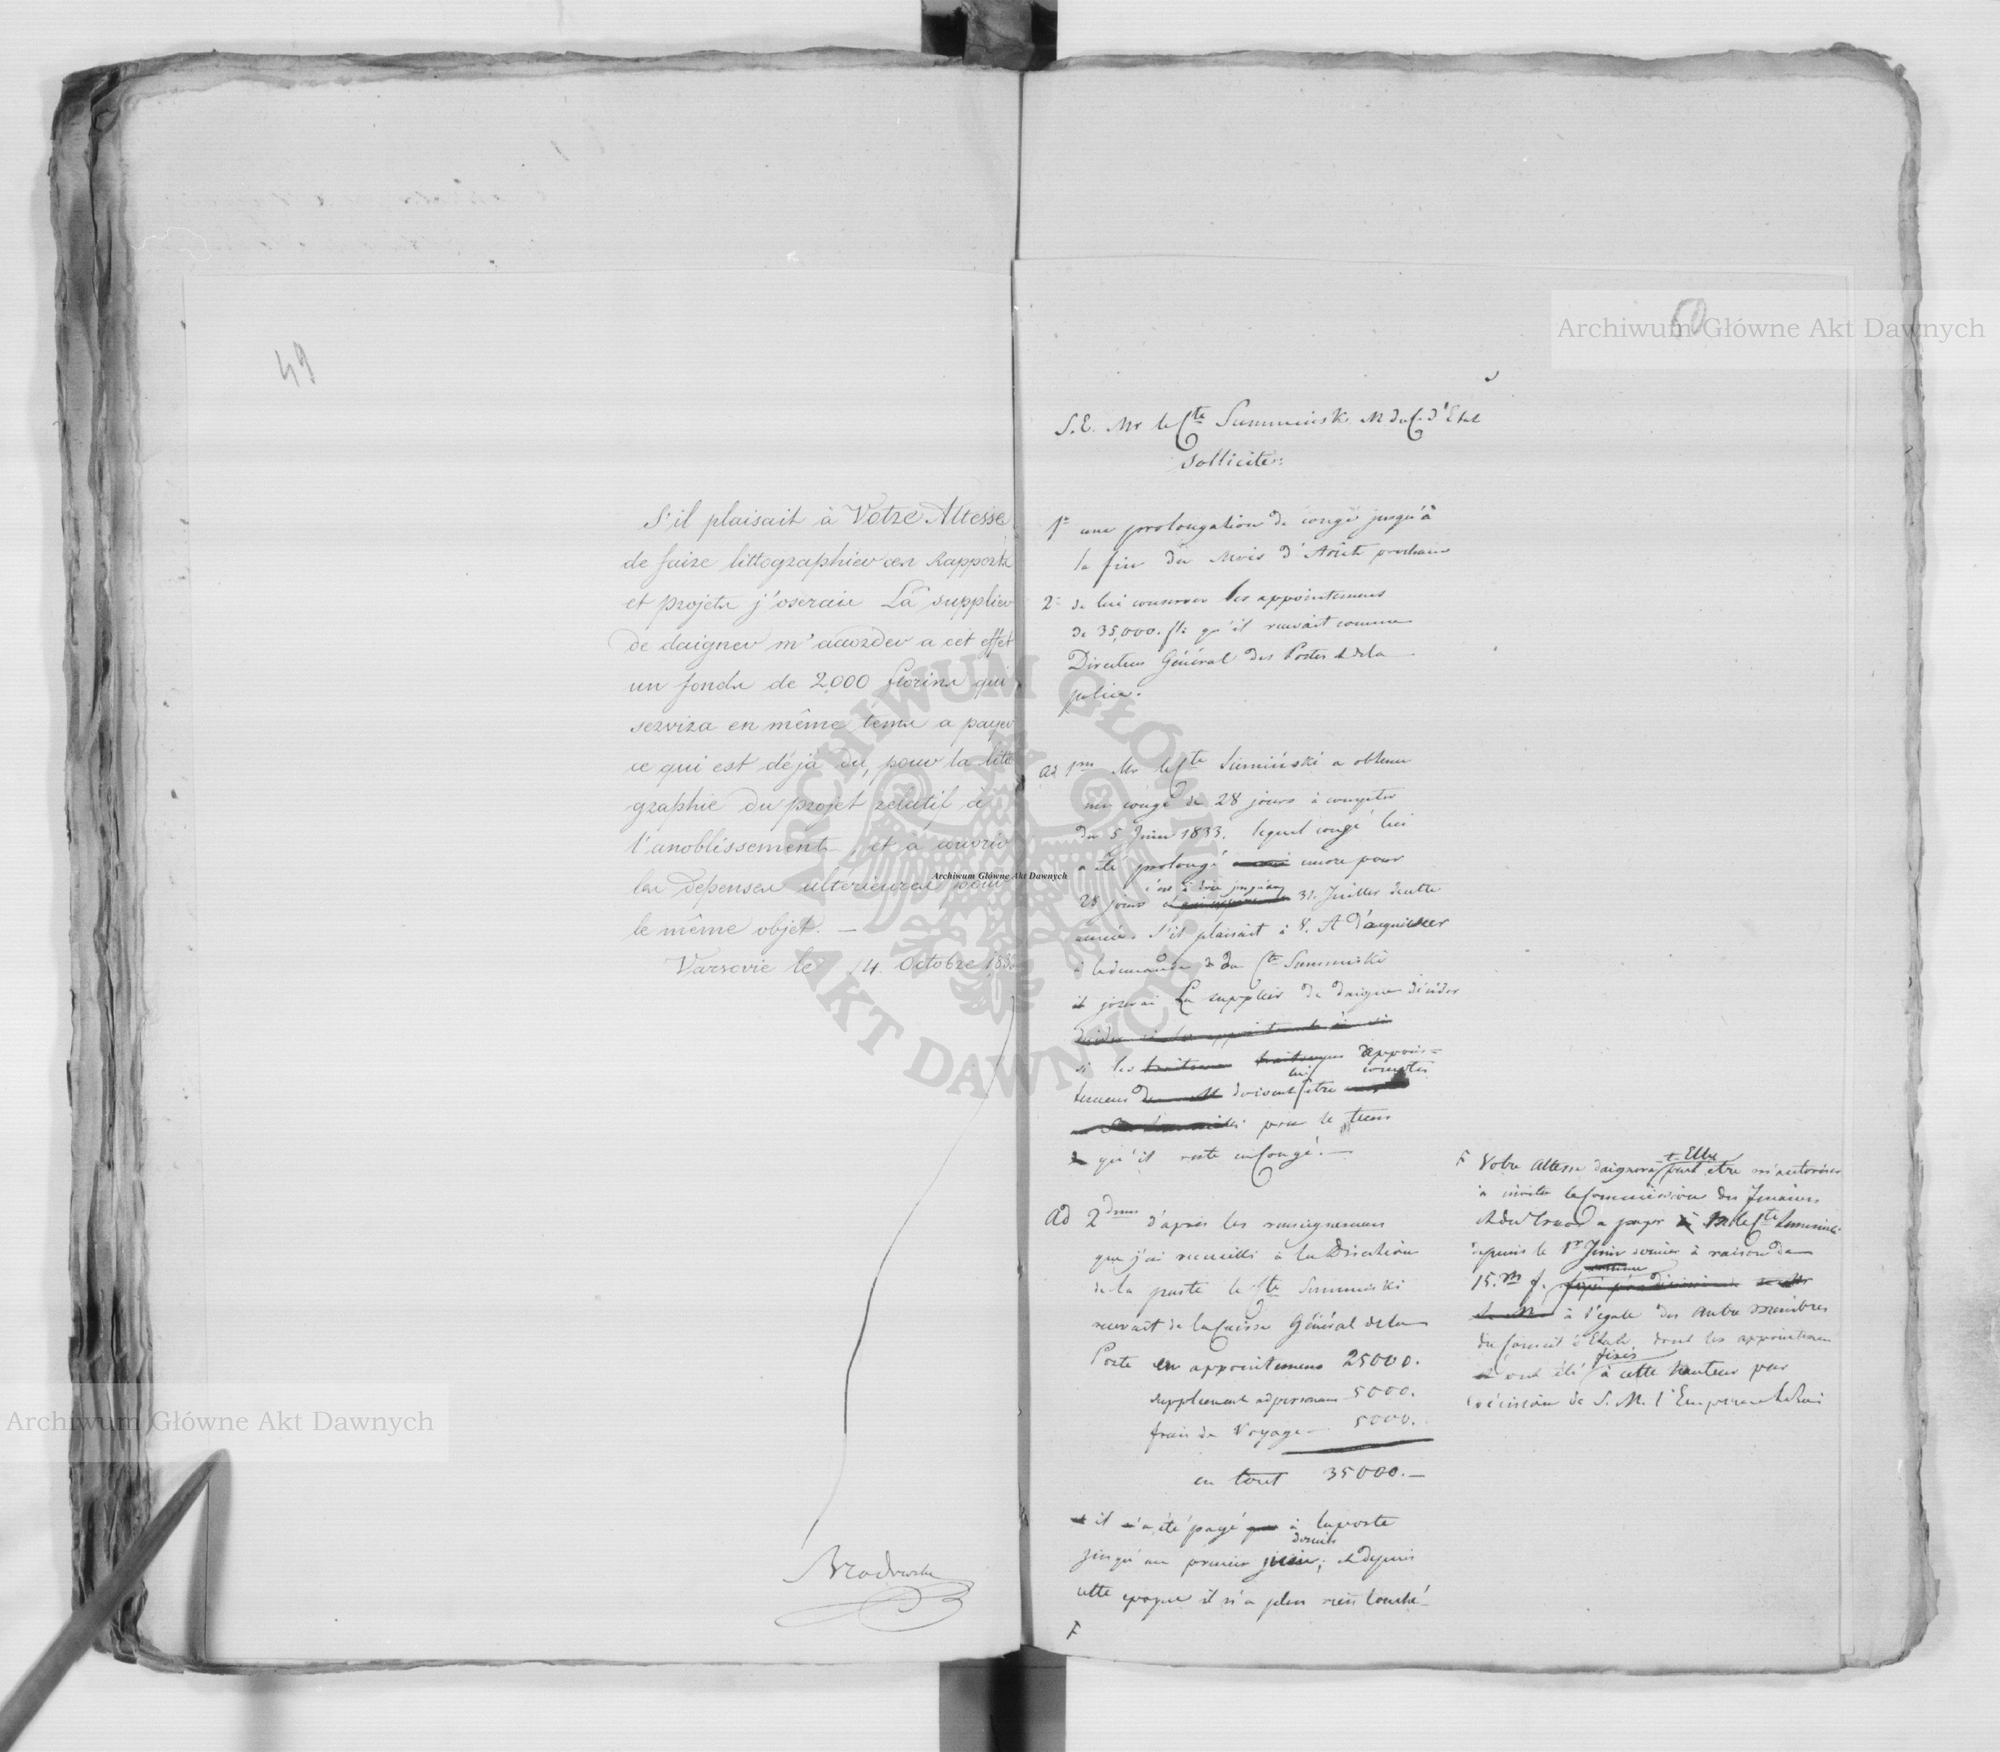 49
S'il plaisait à Votre Altesse
de faire littographier ces Rapports
et projets j'oserais La supplier
de daigner m'accorder a cet effet
un fonds de 2,000 florins qui
servira en même tems a payer
ce qui est déjà du, pour la litto
graphie du projet relatif à
l'anoblissement, et à couvrir
les depenses ultérieures pour
le même objet. —
Varsovie le 14 Octobre 183
50
S. E. Mr le Cte Summinski M du C. d'Etat
Sollicite:
1° une prolongation de congé jusqu'à
la fin du Mois d'Août prochain
2° de lui conserver les appointemens
de 35,000. fl: qu'il recevait comme
Directeur Général des Postes et de la
police.
ad 1m Mr le Cte Sumiński a obtenu
un congé de 28 jours à compter
du 5 Juin 1833. lequel congé lui
a été prolongé encore pour
c'est à dire jusqu'au
28 jours 31. Juillet de cette
année. S'il plaisait à V. A d'acquiescer
à la demande du Cte Summinski
j'oserai La supplier de daigner décider
si les appoin=
lui comptés
temens doivent être
pour le tems
qu'il reste en Congé. —
ad 2dum d'après les renseignemens
que j'ai recueillis à la Direction
de la poste le Cte Summinski
recevait de la Caisse Général de la
Poste en appointemens 25000.
supplement ad personam 5000.
frais de Voyage 5000.
en tout 35000. —
il a été payé à la poste
dernier
jusqu'au premier juin; et depuis
cette epoque il n'a plus rien touché
F
F Votre Altesse daignera peut être m'autoriser
t-Elle
à inviter la Commission des Finances
et du Tresor a payer le Cte Summinski
depuis le 1r Juin dernier à raison de
15.m f.
à l'égale des autre membres
du Conseil d'Etat, dont les appointemens
fixés
ont été à cette hauteur par
decision de S. M. l'Empereur et Roi
Archiwum Główne Akt Dawnych
Archiwum Główne Akt Dawnych
Archiwum Główne Akt Dawnych
ARCHIWUM GŁÓWNE AKT DAWNYCH